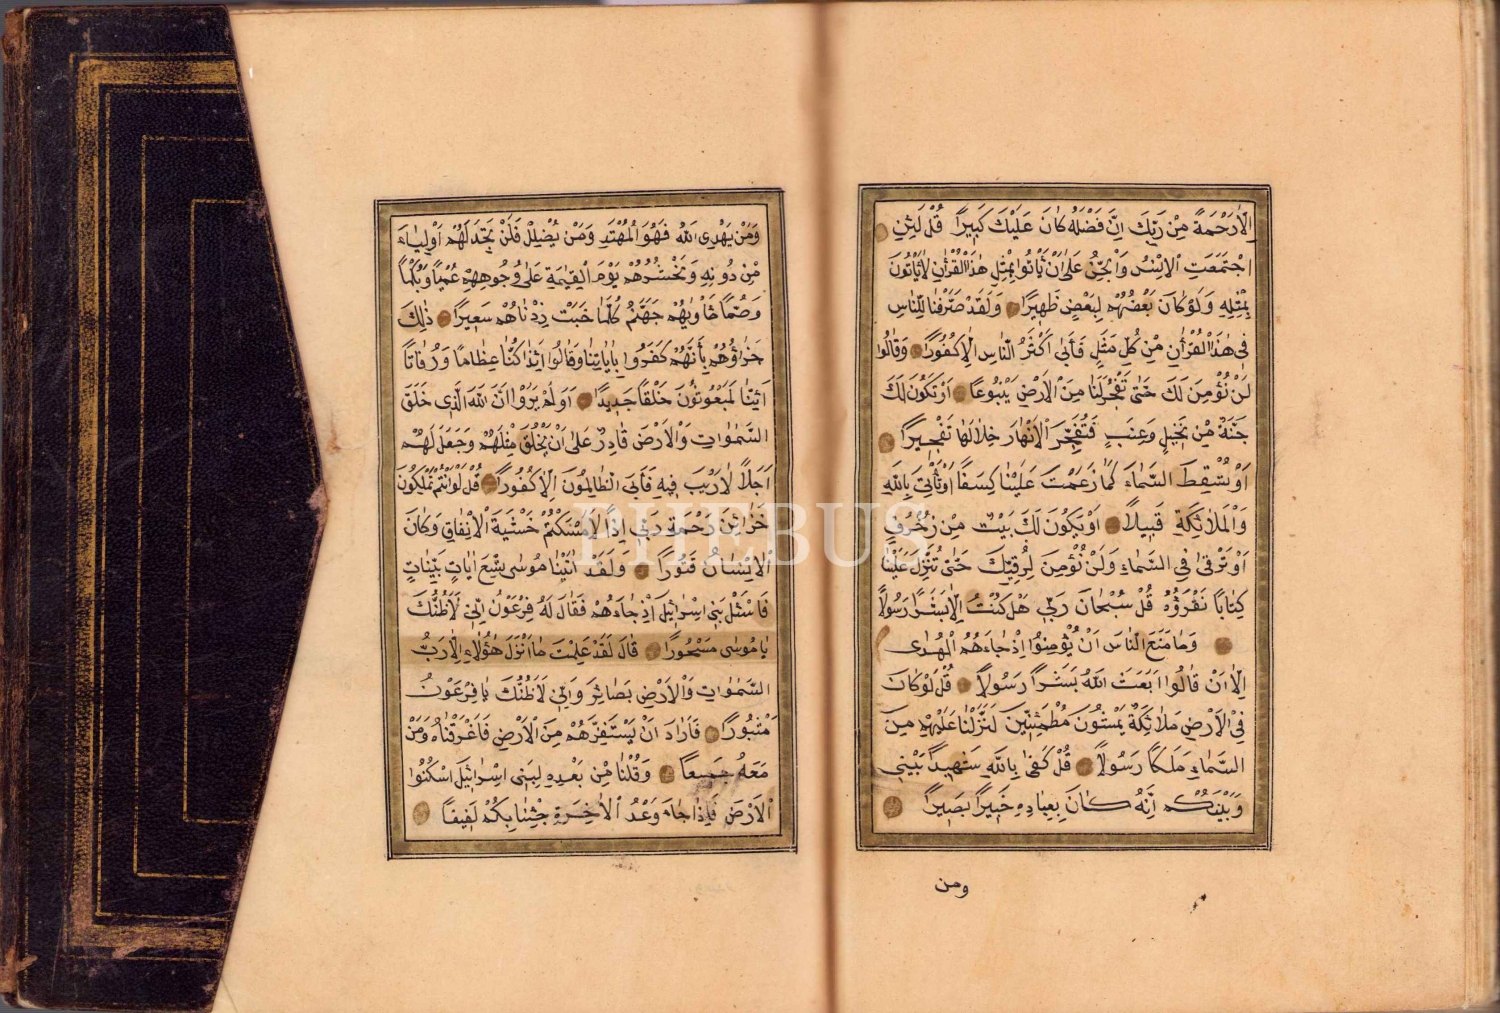 اِلَّا رَحْمَةً مِنْ رَبِّكَ اِنَّ فَضْلَهُ كَانَ عَلَيْكَ كَبِيرًا قُلْ لَئِنِ
اجْتَمَعَتِ الْاِنْسُ وَالْجِنُّ عَلٰى اَنْ يَأْتُوا بِمِثْلِ هٰذَا الْقُرْاٰنِ لَا يَأْتُونَ
بِمِثْلِهِ وَلَوْ كَانَ بَعْضُهُمْ لِبَعْضٍ ظَهِيرًا وَلَقَدْ صَرَّفْنَا لِلنَّاسِ
فِى هٰذَا الْقُرْاٰنِ مِنْ كُلِّ مَثَلٍ فَاَبٰى اَكْثَرُ النَّاسِ اِلَّا كُفُورًا وَقَالُوا
لَنْ نُؤْمِنَ لَكَ حَتّٰى تَفْجُرَ لَنَا مِنَ الْاَرْضِ يَنْبُوعًا اَوْ تَكُونَ لَكَ
جَنَّةٌ مِنْ نَخِيلٍ وَعِنَبٍ فَتُفَجِّرَ الْاَنْهَارَ خِلَالَهَا تَفْجِيرًا
اَوْ تُسْقِطَ السَّمَاءَ كَمَا زَعَمْتَ عَلَيْنَا كِسَفًا اَوْ تَأْتِىَ بِاللّٰهِ
وَالْمَلٰئِكَةِ قَبِيلًا اَوْ يَكُونَ لَكَ بَيْتٌ مِنْ زُخْرُفٍ
اَوْ تَرْقٰى فِى السَّمَاءِ وَلَنْ نُؤْمِنَ لِرُقِيِّكَ حَتّٰى تُنَزِّلَ عَلَيْنَا
كِتَابًا نَقْرَؤُهُ قُلْ سُبْحَانَ رَبِّى هَلْ كُنْتُ اِلَّا بَشَرًا رَسُولًا
وَمَا مَنَعَ النَّاسَ اَنْ يُؤْمِنُوا اِذْ جَاءَهُمُ الْهُدٰى
اِلَّا اَنْ قَالُوا اَبَعَثَ اللّٰهُ بَشَرًا رَسُولًا قُلْ لَوْ كَانَ
فِى الْاَرْضِ مَلٰئِكَةٌ يَمْشُونَ مُطْمَئِنِّينَ لَنَزَّلْنَا عَلَيْهِمْ مِنَ
السَّمَاءِ مَلَكًا رَسُولًا قُلْ كَفٰى بِاللّٰهِ شَهِيدًا بَيْنِى
وَبَيْنَكُمْ اِنَّهُ كَانَ بِعِبَادِهِ خَبِيرًا بَصِيرًا
ومن
وَمَنْ يَهْدِى اللّٰهُ فَهُوَ الْمُهْتَدِ وَمَنْ يُضْلِلْ فَلَنْ تَجِدَ لَهُمْ اَوْلِيَاءَ
مِنْ دُونِهِ وَنَحْشُرُهُمْ يَوْمَ الْقِيٰمَةِ عَلٰى وُجُوهِهِمْ عُمْيًا وَبُكْمًا
وَصُمًّا مَأْوٰيهُمْ جَهَنَّمُ كُلَّمَا خَبَتْ زِدْنَاهُمْ سَعِيرًا ذٰلِكَ
جَزَاؤُهُمْ بِاَنَّهُمْ كَفَرُوا بِاٰيَاتِنَا وَقَالُوا اَئِذَا كُنَّا عِظَامًا وَرُفَاتًا
اَئِنَّا لَمَبْعُوثُونَ خَلْقًا جَدِيدًا اَوَلَمْ يَرَوْا اَنَّ اللّٰهَ الَّذِى خَلَقَ
السَّمٰوَاتِ وَالْاَرْضَ قَادِرٌ عَلٰى اَنْ يَخْلُقَ مِثْلَهُمْ وَجَعَلَ لَهُمْ
اَجَلًا لَا رَيْبَ فِيهِ فَاَبَى الظَّالِمُونَ اِلَّا كُفُورًا قُلْ لَوْ اَنْتُمْ تَمْلِكُونَ
خَزَائِنَ رَحْمَةِ رَبِّى اِذًا لَاَمْسَكْتُمْ خَشْيَةَ الْاِنْفَاقِ وَكَانَ
الْاِنْسَانُ قَتُورًا وَلَقَدْ اٰتَيْنَا مُوسٰى تِسْعَ اٰيَاتٍ بَيِّنَاتٍ
فَاسْئَلْ بَنِى اِسْرَائِلَ اِذْ جَاءَهُمْ فَقَالَ لَهُ فِرْعَوْنُ اِنِّى لَاَظُنُّكَ
يَا مُوسٰى مَسْحُورًا قَالَ لَقَدْ عَلِمْتَ مَا اَنْزَلَ هٰؤُلَاءِ اِلَّا رَبُّ
السَّمٰوَاتِ وَالْاَرْضِ بَصَائِرَ وَاِنِّى لَاَظُنُّكَ يَا فِرْعَوْنُ
مَثْبُورًا فَاَرَادَ اَنْ يَسْتَفِزَّهُمْ مِنَ الْاَرْضِ فَاَغْرَقْنَاهُ وَمَنْ
مَعَهُ جَمِيعًا وَقُلْنَا مِنْ بَعْدِهِ لِبَنِى اِسْرَائِلَ اسْكُنُوا
الْاَرْضَ فَاِذَا جَاءَ وَعْدُ الْاٰخِرَةِ جِئْنَا بِكُمْ لَفِيفًا
PHEBUS